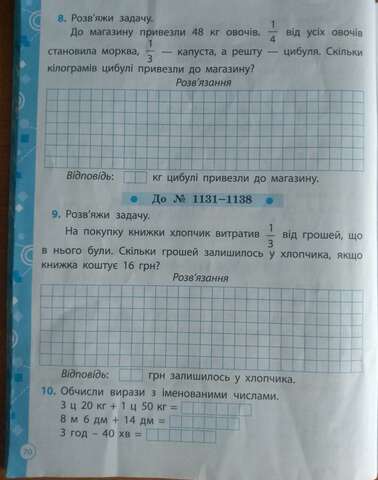 8. Розв'яжи задачу.
До магазину привезли 48 кг овочів. 1/4 від усіх овочів
становила морква, 1/3 — капуста, а решту — цибуля. Скільки
кілограмів цибулі привезли до магазину?
Розв'язання
Відповідь: кг цибулі привезли до магазину.
До № 1131–1138
9. Розв'яжи задачу.
На покупку книжки хлопчик витратив 1/3 від грошей, що
в нього були. Скільки грошей залишилось у хлопчика, якщо
книжка коштує 16 грн?
Розв'язання
Відповідь: грн залишилось у хлопчика.
10. Обчисли вирази з іменованими числами.
3 ц 20 кг + 1 ц 50 кг =
8 м 6 дм + 14 дм =
3 год – 40 хв =
70